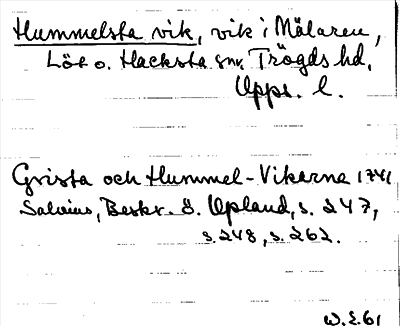 Hummelsta vik, vik i Mälaren,
Löt o. Hacksta snr Trögds hd,
Upps. l.
Grista och Hummel-Vikarna 1741
Salvius, Beskr. ö. Upland, s. 247,
s. 248, s. 262.
W.E. 61